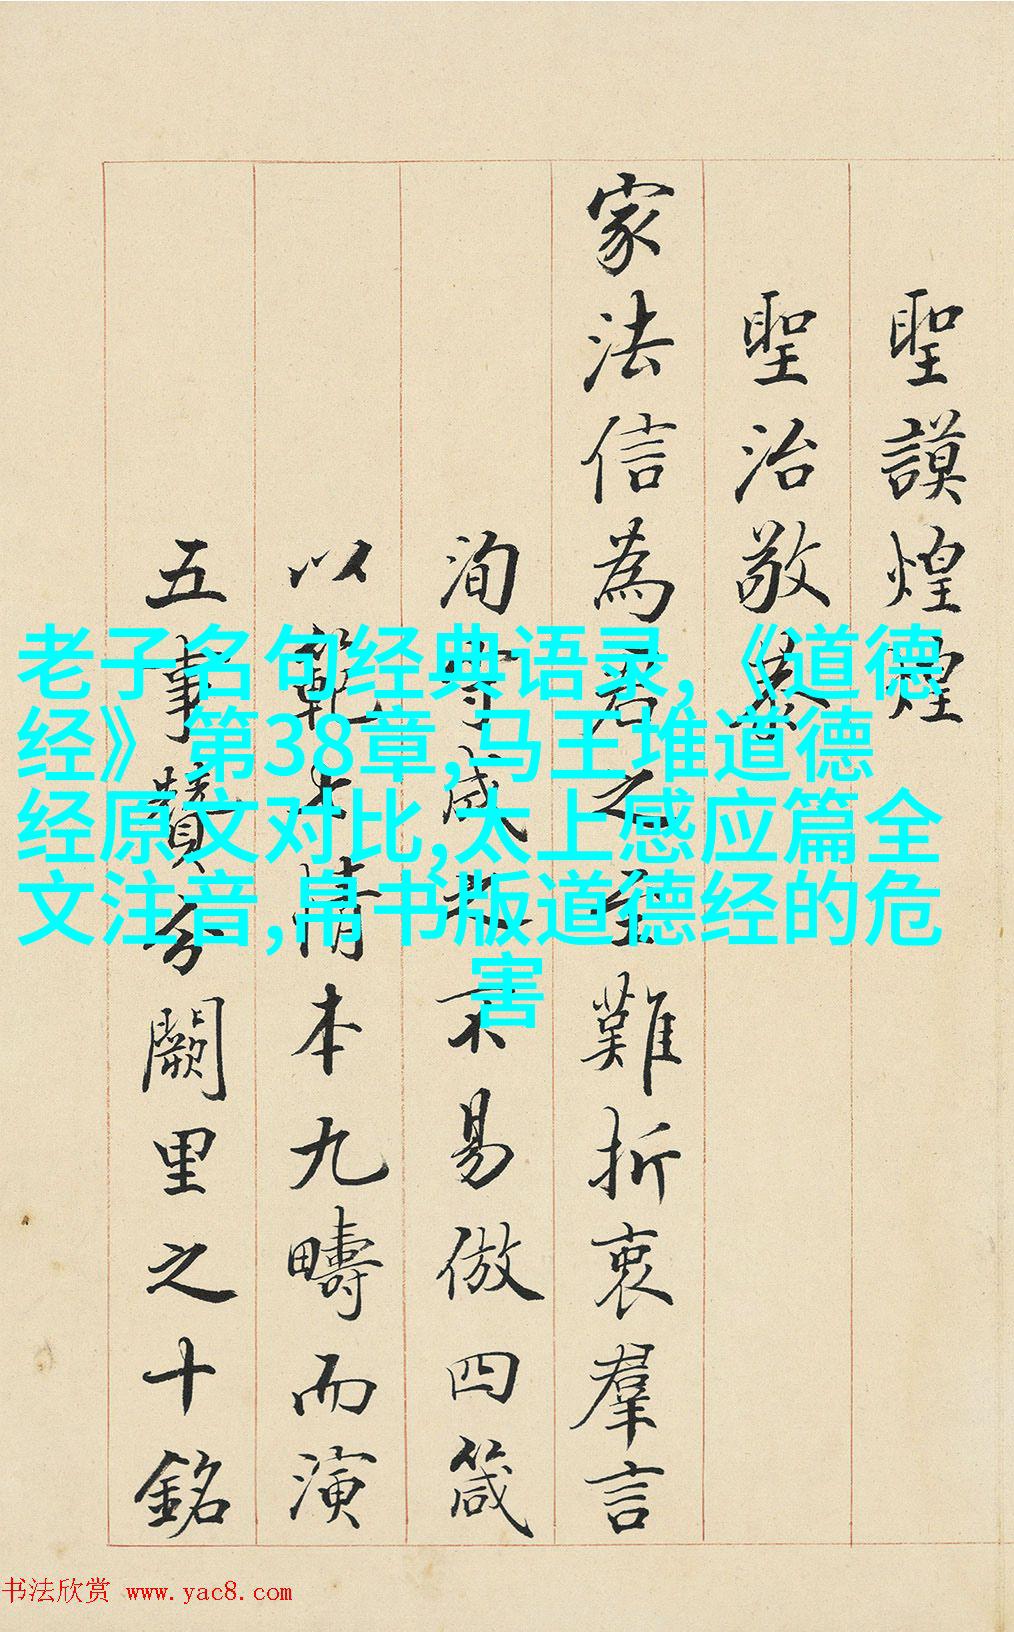 聖謨煌煌
聖治敬
家法信為君之至難折衷羣言
洵守成不易倣四箴
以範七情本九疇而演
五事贊分闕里之十銘
老子名句经典语录,《道德
经》第38章,马王堆道德
经原文对比,太上感应篇全
文注音,帛书版道德经的危
害
书法欣赏 www.yac8.com